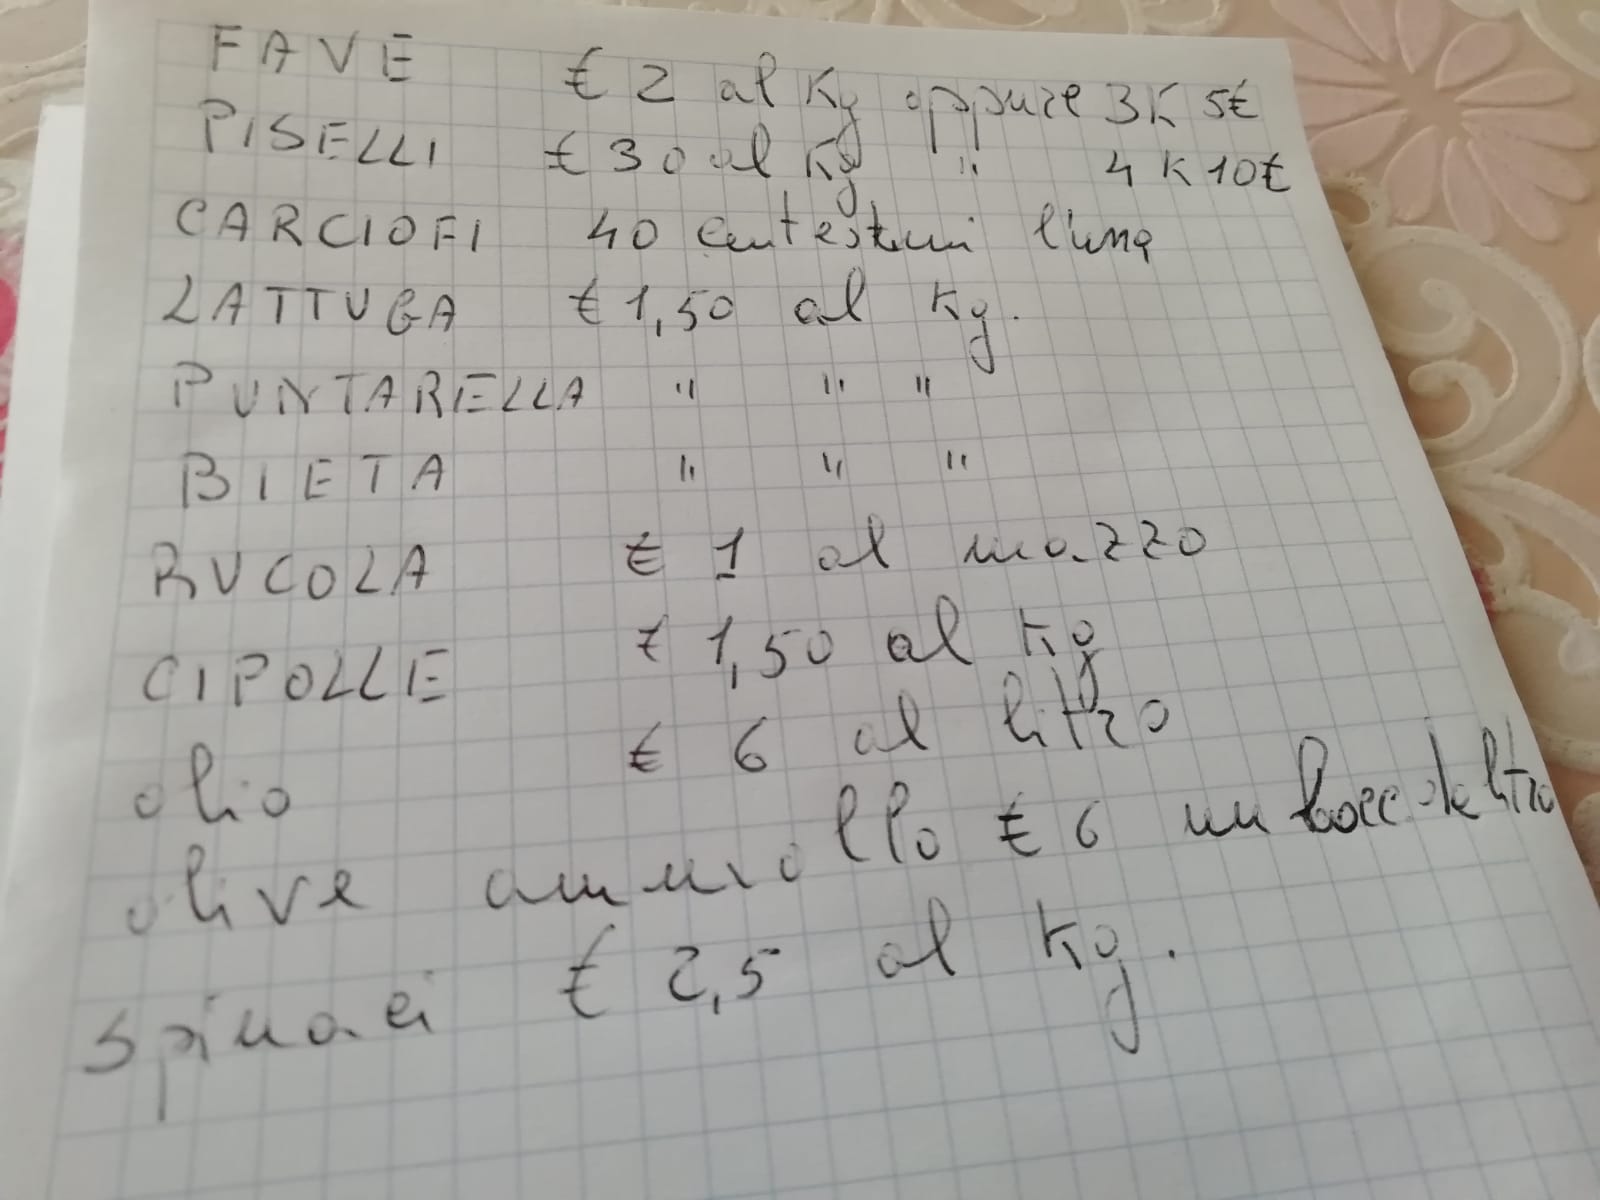 FAVE € 2 al Kg oppure 3K 5€
PISELLI € 30 al Kg " 4 K 10€
CARCIOFI 40 centesimi l'uno
LATTUGA € 1,50 al Kg.
PUNTARELLA " " "
BIETA " " "
RUCOLA € 1 al mazzo
CIPOLLE € 1,50 al Kg
olio € 6 al litro
olive ammollo € 6 un bocc da litro
spinaci € 2,5 al Kg.